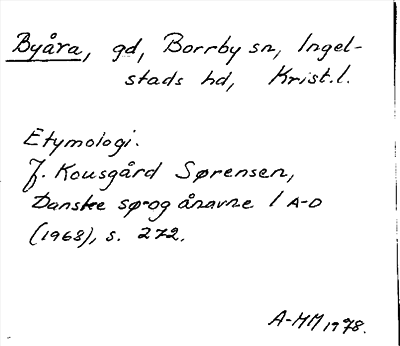 Byåra, gd, Borrby sn, Ingel-
stads hd, Krist.l.
Etymologi.
J. Kousgård Sørensen,
Danske sø-og ånavne 1 A-D
(1968), s. 272.
A-MM 1978.